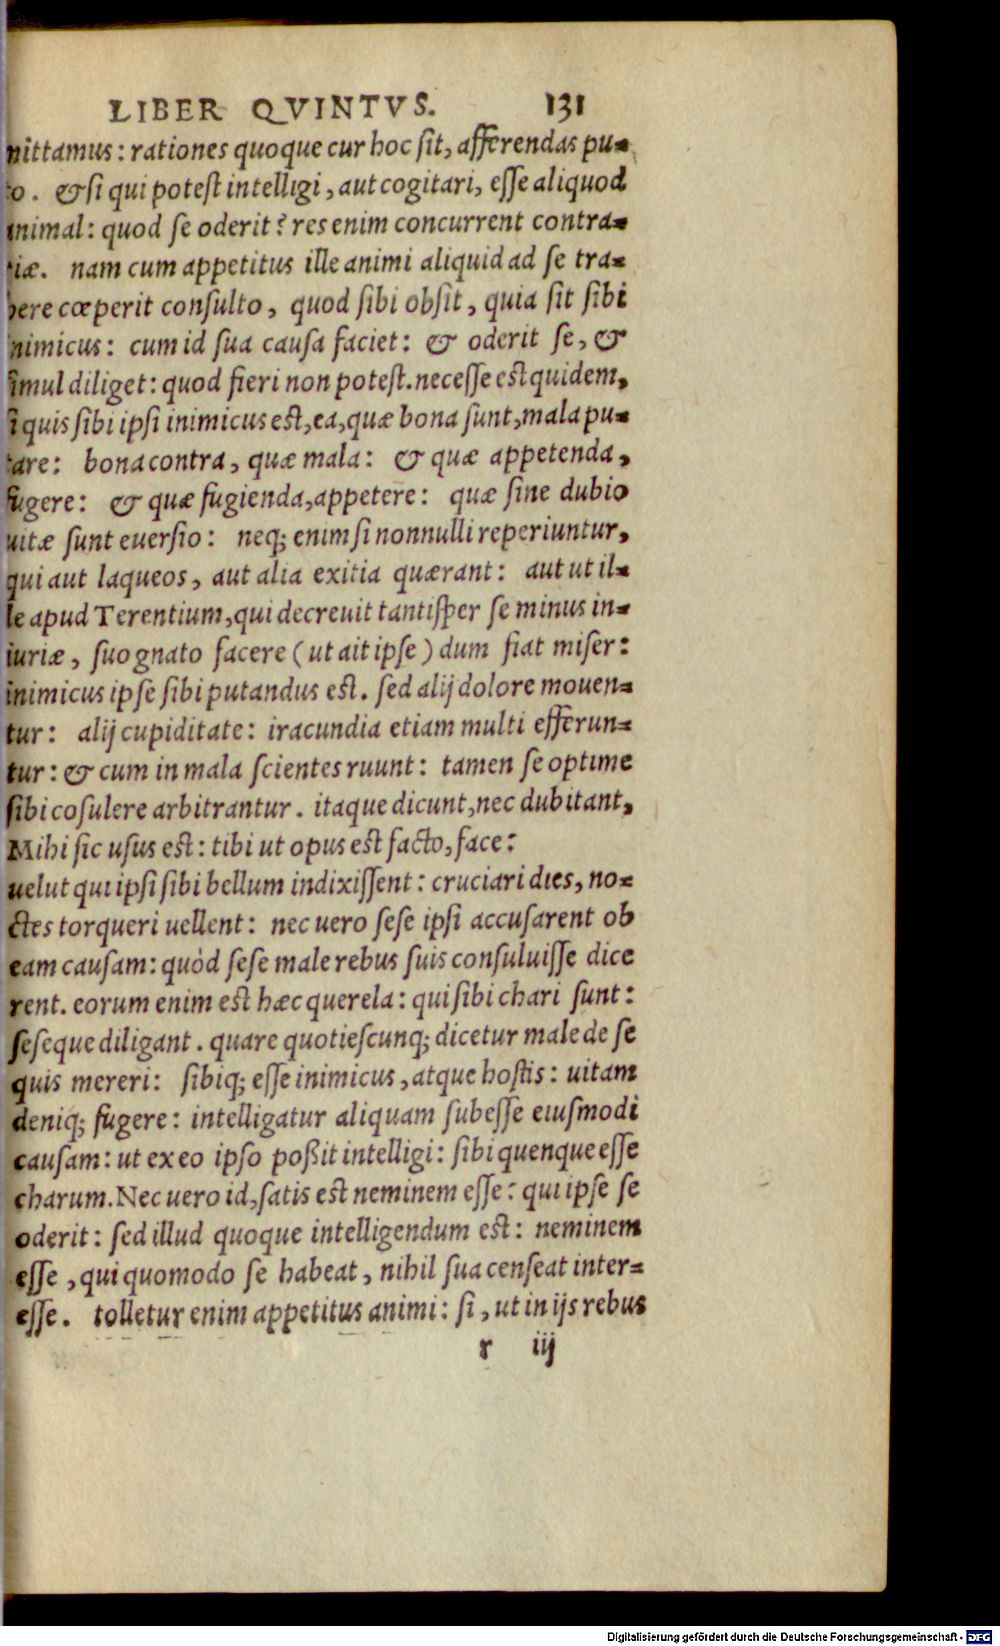 LIBER QVINTVS. 131
nittamus: rationes quoque cur hoc sit, afferendas pu-
to. & si qui potest intelligi, aut cogitari, esse aliquod
animal: quod se oderit? res enim concurrent contra-
riæ. nam cum appetitus ille animi aliquid ad se tra-
here cœperit consulto, quod sibi obsit, quia sit sibi
inimicus: cum id sua causa faciet: & oderit se, &
simul diliget: quod fieri non potest. necesse est quidem,
si quis sibi ipsi inimicus est, ea, quæ bona sunt, mala pu-
tare: bona contra, quæ mala: & quæ appetenda,
fugere: & quæ fugienda, appetere: quæ sine dubio
uitæ sunt euersio: neq; enim si nonnulli reperiuntur,
qui aut laqueos, aut alia exitia quærant: aut ut il-
le apud Terentium, qui decreuit tantisper se minus in-
iuriæ, suo gnato facere (ut ait ipse) dum fiat miser:
inimicus ipse sibi putandus est. sed alij dolore mouen-
tur: alij cupiditate: iracundia etiam multi efferun-
tur: & cum in mala scientes ruunt: tamen se optime
sibi cosulere arbitrantur. itaque dicunt, nec dubitant,
Mihi sic usus est: tibi ut opus est facto, face:
uelut qui ipsi sibi bellum indixissent: cruciari dies, no-
ctes torqueri uellent: nec uero sese ipsi accusarent ob
eam causam: quòd sese male rebus suis consuluisse dice
rent. eorum enim est hæc querela: qui sibi chari sunt:
seseque diligant. quare quotiescunq; dicetur male de se
quis mereri: sibiq; esse inimicus, atque hostis: uitam
deniq; fugere: intelligatur aliquam subesse eiusmodi
causam: ut ex eo ipso poßit intelligi: sibi quenque esse
charum. Nec uero id, satis est neminem esse: qui ipse se
oderit: sed illud quoque intelligendum est: neminem
esse, qui quomodo se habeat, nihil sua censeat inter-
esse. tolletur enim appetitus animi: si, ut in ijs rebus
r iij
Digitalisierung gefördert durch die Deutsche Forschungsgemeinschaft - DFG